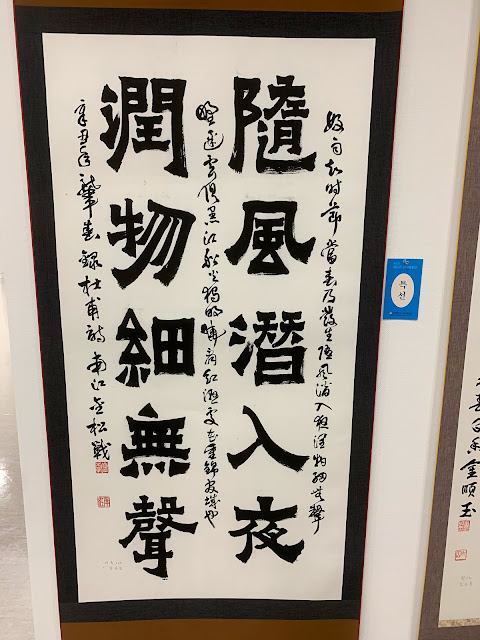 好雨知时節當春乃發生随风潛入夜潤物細無聲
隨風潛入夜
野徑雲俱黑江船火獨明曉看紅濕處花重錦官城
潤物細無聲
辛丑年 春錄杜甫詩南江 松
특선
金順玉